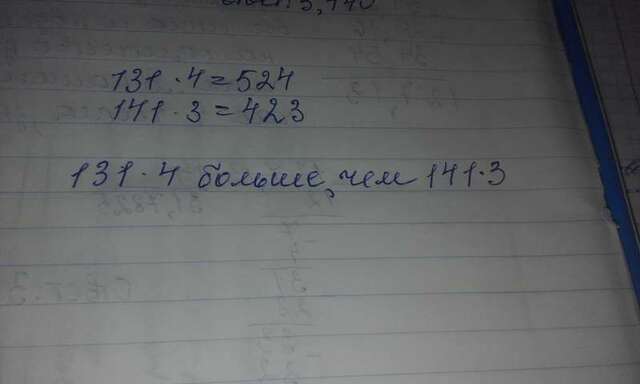 131 · 4 = 524
141 · 3 = 423
131 · 4 больше, чем 141 · 3